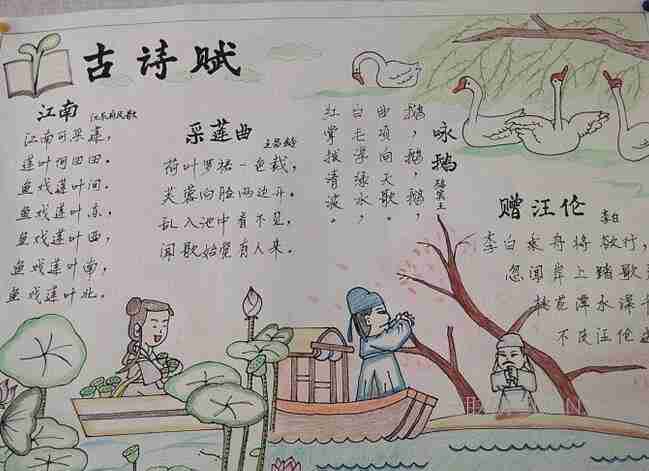 古诗赋
江南
江南可采莲，
莲叶何田田。
鱼戏莲叶间。
鱼戏莲叶东，
鱼戏莲叶西，
鱼戏莲叶南，
鱼戏莲叶北。
采莲曲 王昌龄
荷叶罗裙一色裁，
芙蓉向脸两边开，
乱入池中看不见，
闻歌始觉有人来。
咏鹅 骆宾王
鹅，鹅，鹅，
曲项向天歌，
白毛浮绿水，
红掌拨清波。
赠汪伦 李白
李白乘舟将欲行，
忽闻岸上踏歌
桃花潭水深千
不及汪伦送